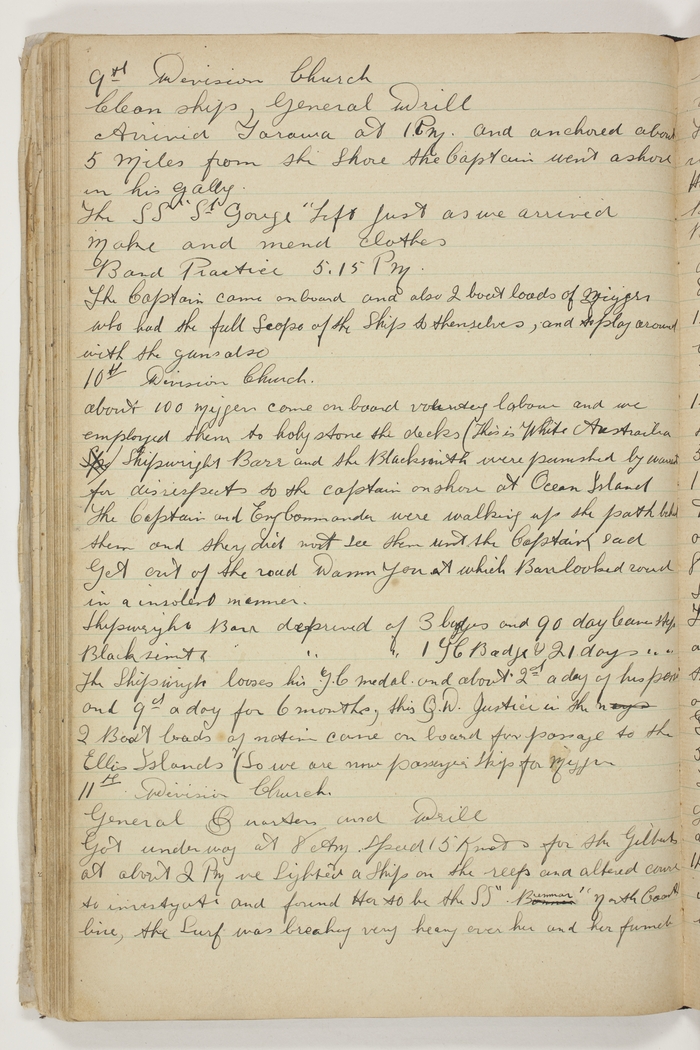 9th Division Church
Clean ship, General Drill
Arrived Tarawa at 1 Pm. and anchored about
5 miles from the shore the Captain went ashore
in his galley.
The SS "St Gorge" left just as we arrived
Make and mend clothes
Band Practice 5.15 Pm.
The Captain came onboard and also 2 boat loads of niggers
who had the full scope of the ship to themselves, and to play around
with the guns also
10th Division Church.
about 100 niggers come on board voluntary labour and we
employed them to holystone the decks (This is White Australia
Shipwright Barr and the Blacksmith were punished by warrant
for disrespects to the captain onshore at Ocean Island
The Captain and Eng Commander were walking up the path behind
them and they did not see them until the Captain said
Get out of the road Damn you at which Barr looked round
in a insolent manner.
Shipwright Barr deprived of 3 badges and 90 day leave stop
Blacksmith " " 1 G C Badge & 21 days " "
The Shipwright looses his G.C medal and about 2d a day of his pension
and 9d a day for 6 months, this G.D. Justice in the navy
2 Boat loads of natives came on board for passage to the
Ellis Islands (So we are now passenger ship for niggers
11th Division Church.
General Quarters and Drill
Got underway at 8 Am. Speed 15 Knots for the Gilberts
at about 2 Pm we Sighted a Ship on the reefs and altered course
to investigate and found Her to be the SS" North Coast
line, the Surf was breaking very heavy over her and her funnel